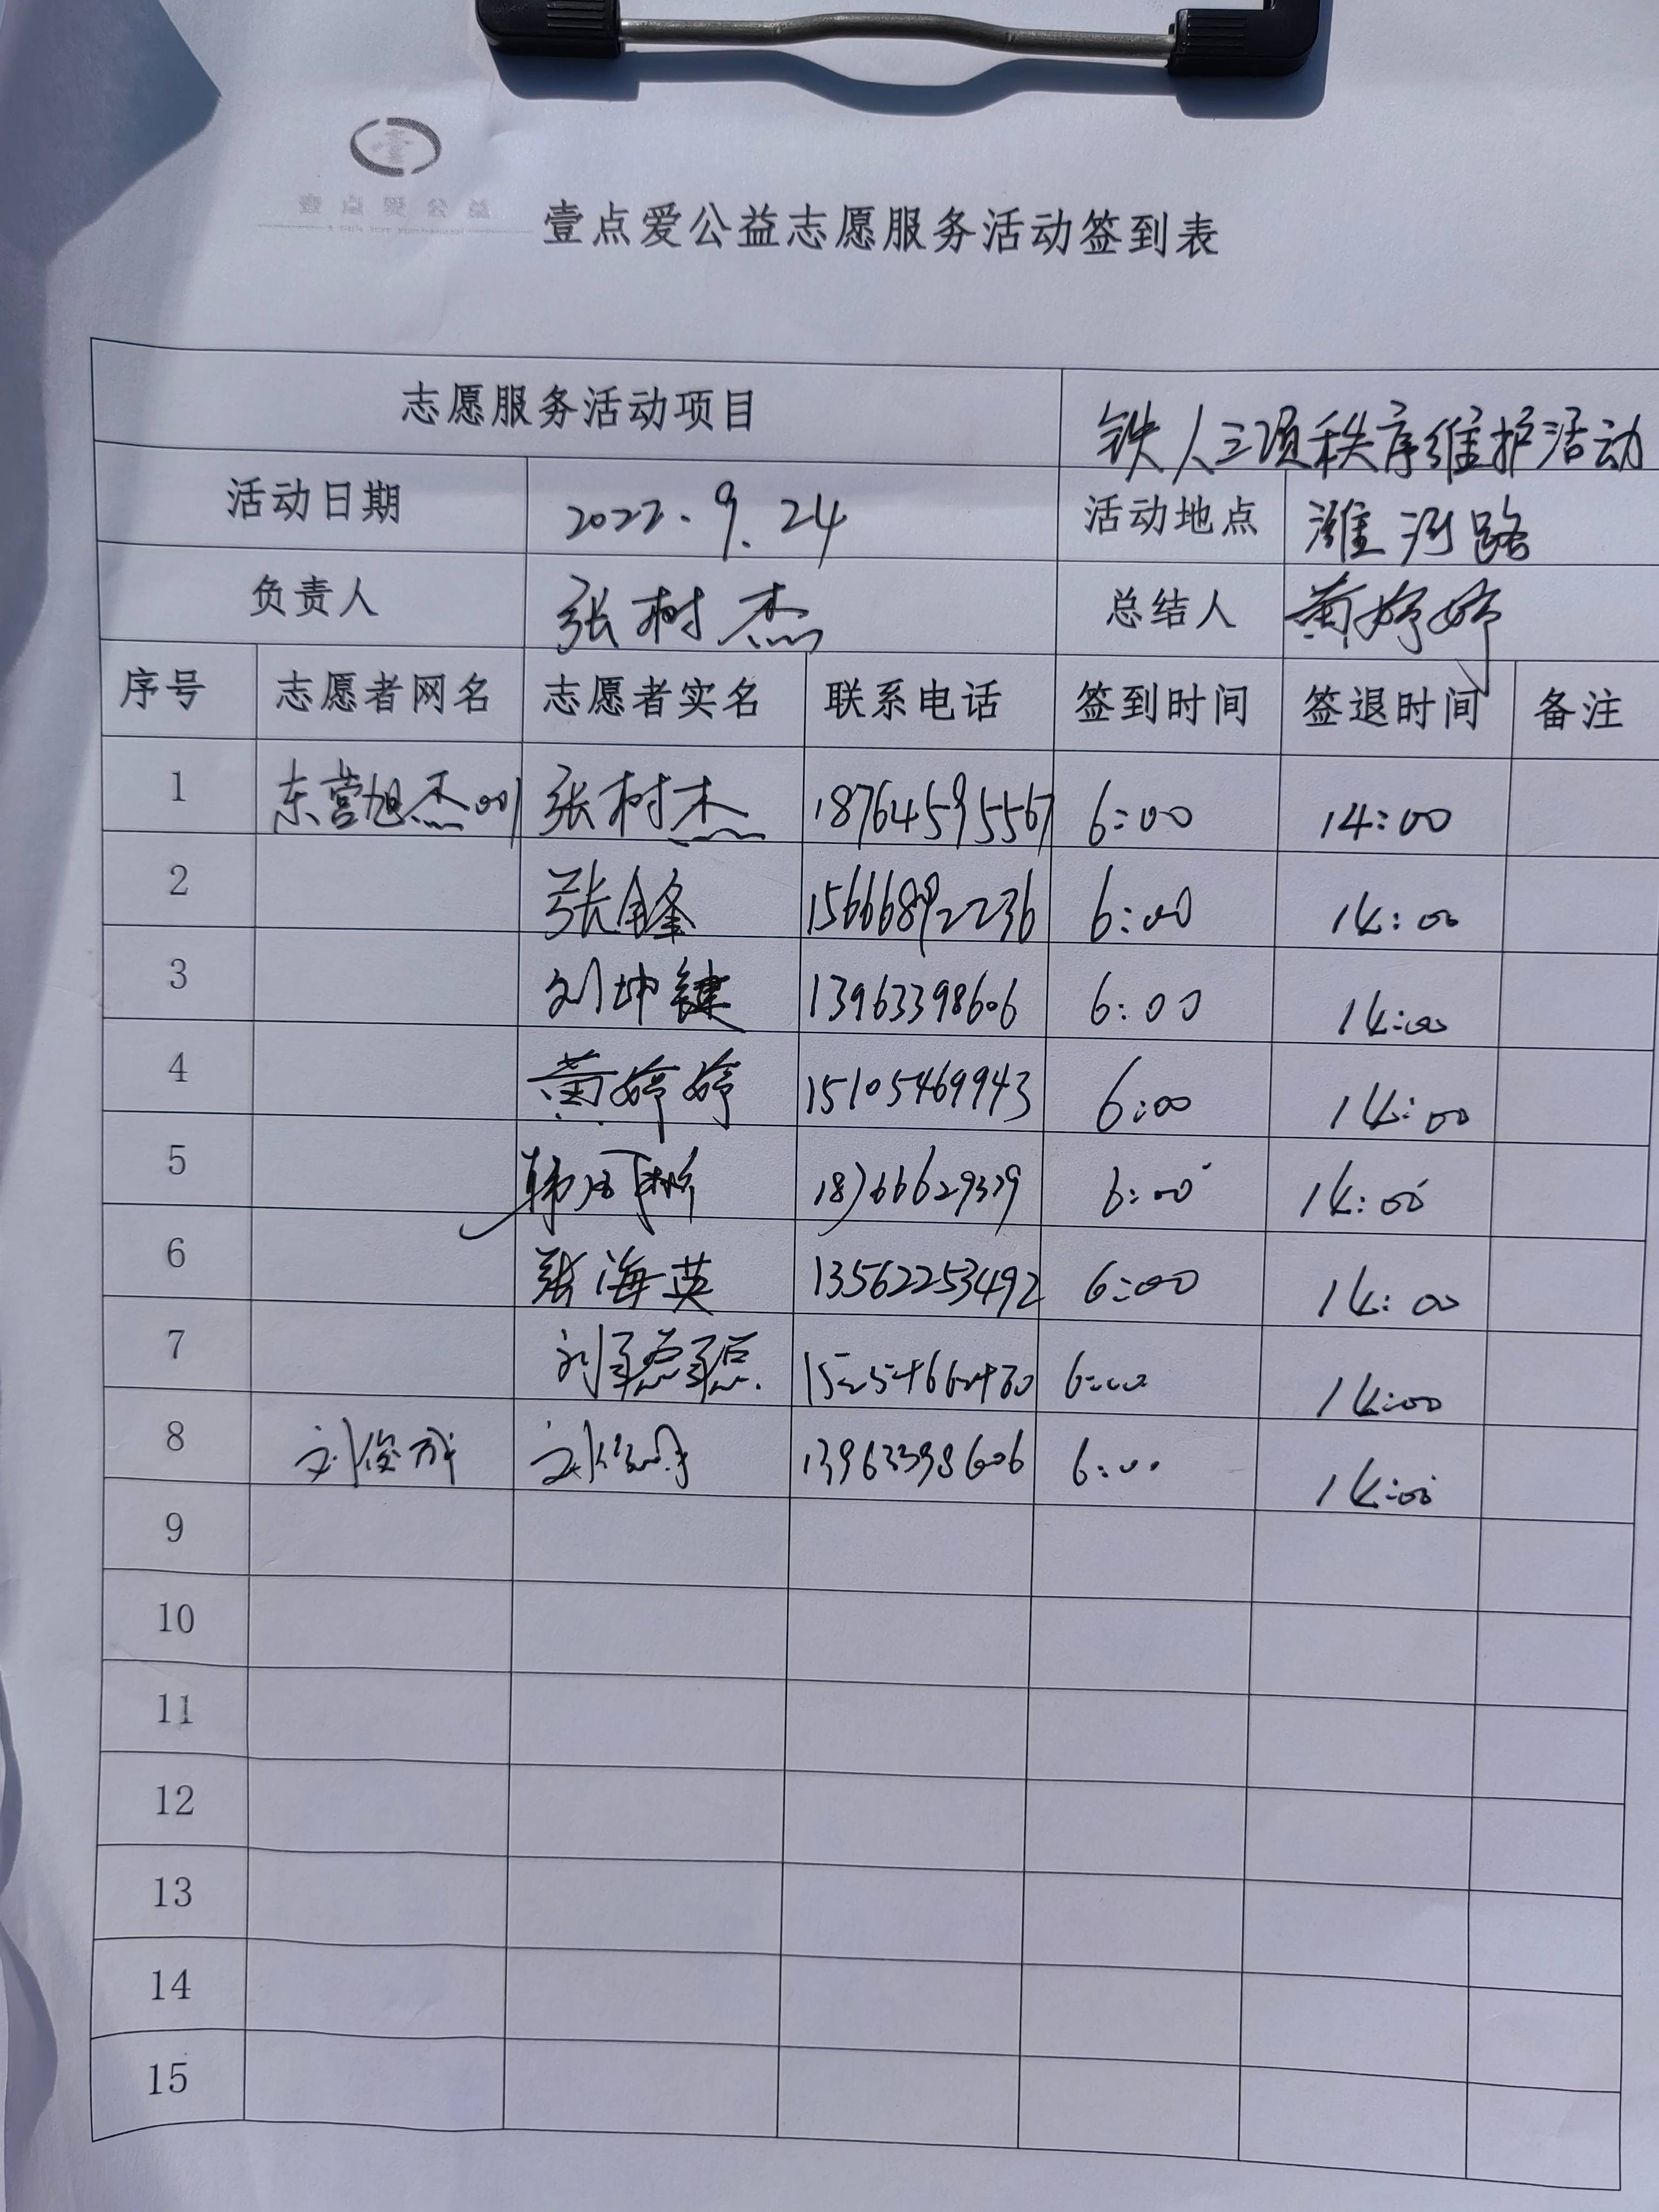 壹点爱公益
壹点爱公益志愿服务活动签到表
志愿服务活动项目 铁人三项秩序维护活动
活动日期 2022.9.24 活动地点 潍河路
负责人 张树杰 总结人 黄婷婷
序号 志愿者网名 志愿者实名 联系电话 签到时间 签退时间 备注
1 东营旭杰001 张树杰 18764595567 6:00 14:00
2 张金峰 15666892236 6:00 14:00
3 刘坤键 13963398606 6:00 14:00
4 黄婷婷 15105469943 6:00 14:00
5 6:00 14:00
6 张海英 13562253492 6:00 14:00
7 6:00 14:00
8 刘俊成 13963398606 6:00 14:00
9
10
11
12
13
14
15